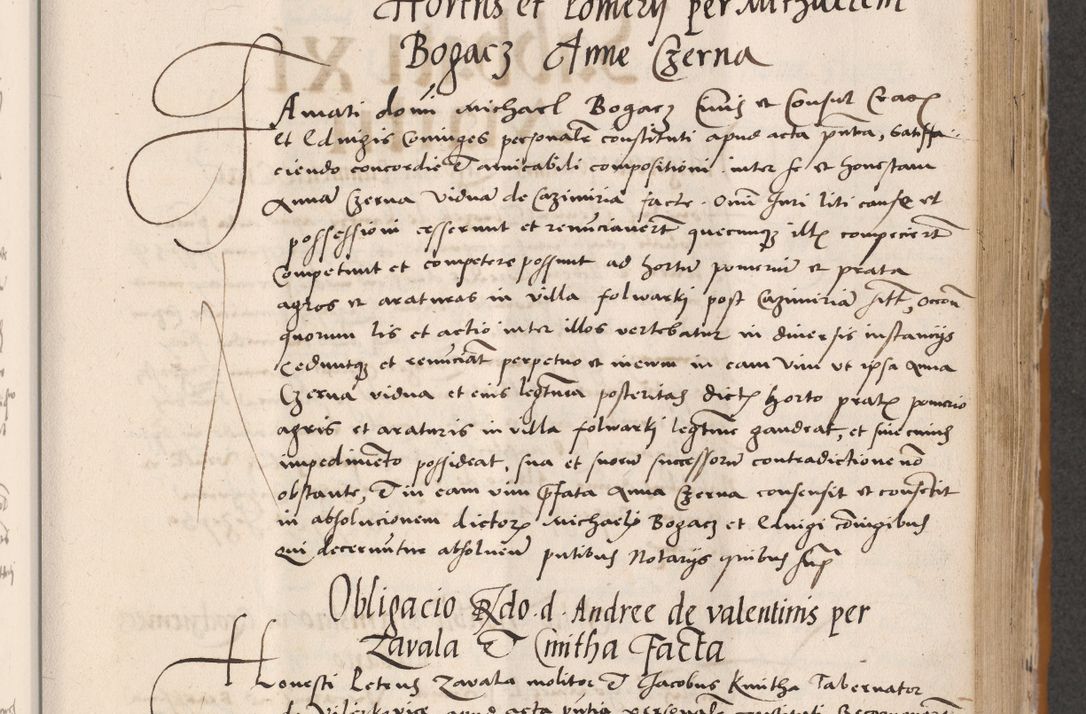 Hortis et Pomerij per Michaelem
Bogacz Anne Czerna
Famati domi Michael Bogacz Civis et Consul Crac
et Edvigis Coniuges personaliter constituti apud acta pntia, Satisfa
ciendo concordie et amicabili compositioni inter se et honestam
Annam Czerna Viduam de Cazimiria facte. Omni Juri liti cause et
possessioni cesserunt et renunciaverunt quecunq illis competierunt
Competunt et competere possunt ad hortum pomerium et prata
agros et araturas in villa folwarki post Cazimiriam
quorum lis et actio inter illos vertebatur in diversis instancijs
Ceduntq et renunciant perpetuo et in evum in eam vim ut ipsa Anna
Czerna vidua et eius legitima posteritas dictis horto pratis pomerio
agris et araturis in villa folwarki legitime gaudeat, et sine cuius
impedimento possideat, sua et suorum successorum contradictione non
obstante, Et in eam vim prefata Anna Czerna consensit et consentit
in absolucionem dictorum Michaelis Bogacz et Edvigi coniugibus
Qui decernuntur absolvendi pntibus Notarijs quibus supra
Obligacio Rdo. d. Andree de valentinis per
Zavala et Cmitha Facta
Honesti Petrus Zavala molitor et Jacobus Kmitha Tabernator
de apud acta pntia personaliter constituti Recognoverunt